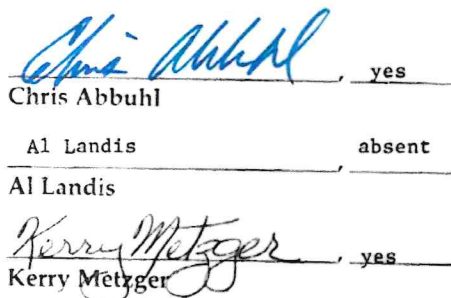 Chris Abbuhl, yes
Chris Abbuhl
Al Landis, absent
Al Landis
Kerry Metzger, yes
Kerry Metzger